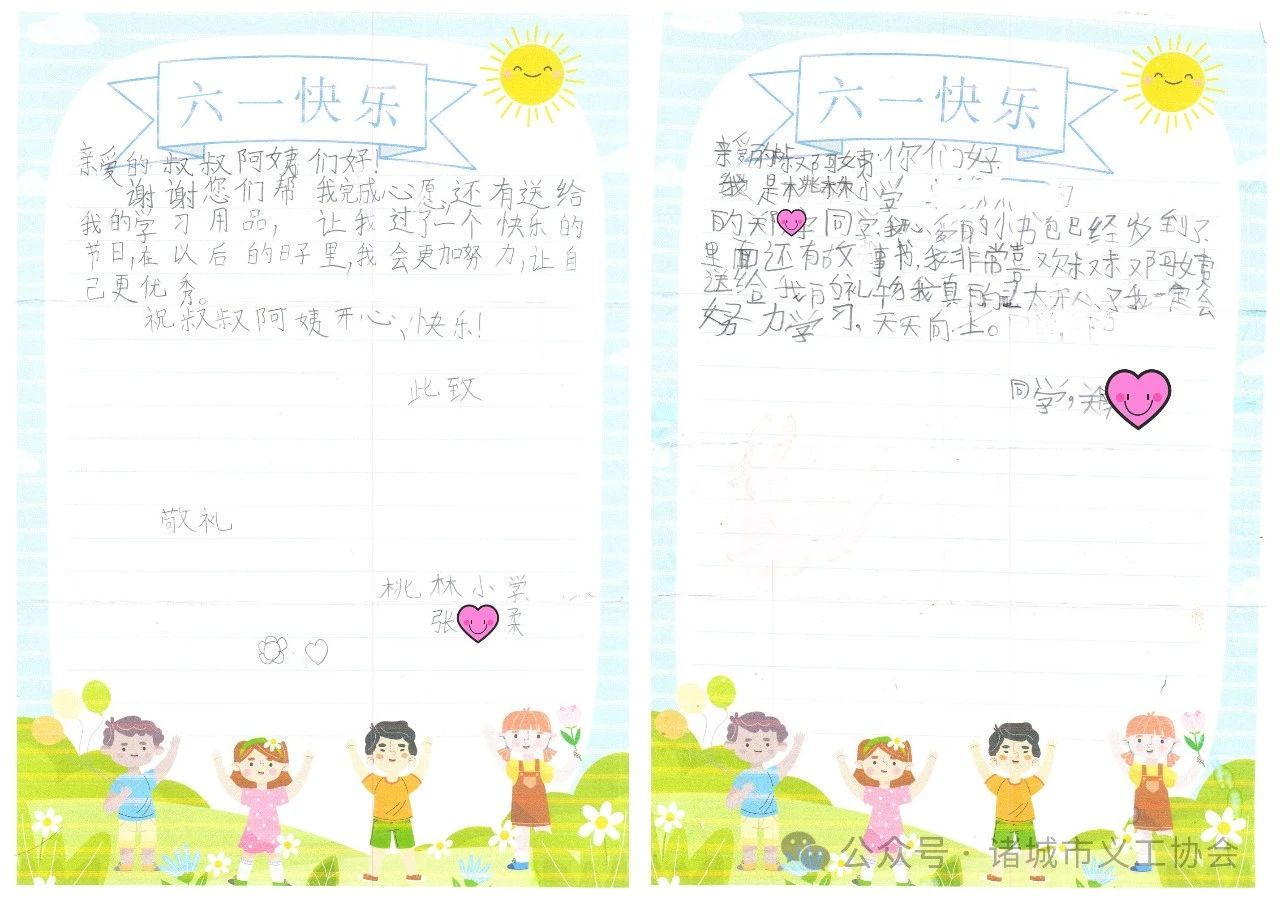 六一快乐
亲爱的叔叔阿姨们好!
谢谢您们帮我完成心愿,还有送给
我的学习用品,让我过了一个快乐的
节日,在以后的日子里,我会更加努力,让自
己更优秀。
祝叔叔阿姨开心,快乐!
此致
敬礼
桃林小学
张 柔
六一快乐
亲爱的叔叔阿姨你们好
我是桃林小学
的 同学,我心爱的小书包已经收到了
里面还有故事书,我非常喜欢
送给我的礼物我真的太开心了我一定会
努力学习,天天向上。
同学,
公众号·诸城市义工协会